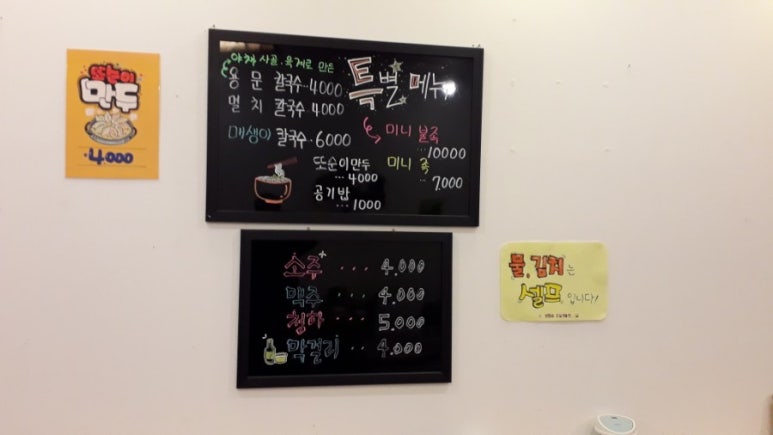 또순이
만두
4000
야채 사골·육계로 만든
특별 메뉴
용문 칼국수··4000
멸치 칼국수 4000
매생이 칼국수·6000
미니 불족
···10000
또순이만두
···4000
미니 족
···7,000
공기밥
···1000
소주 ··· 4.000
맥주 ··· 4.000
청하 ··· 5.000
막걸리 ·· 4.000
물, 김치는
셀프입니다!